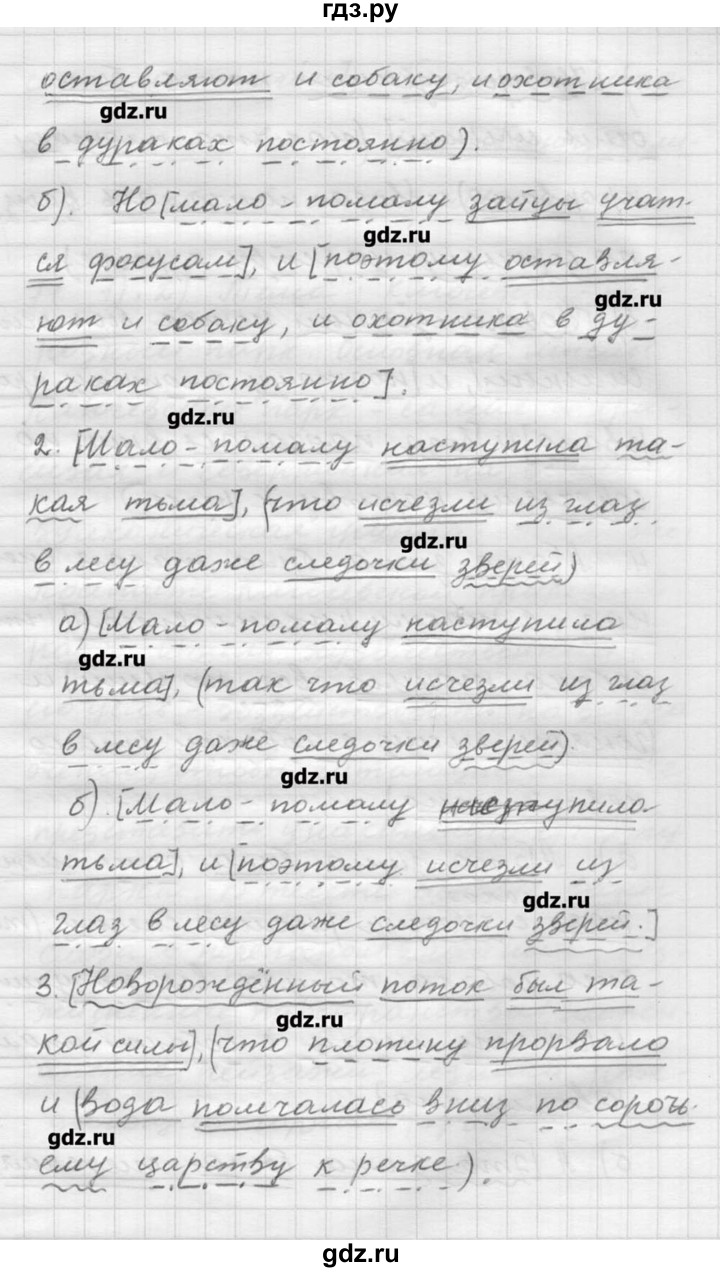 гдз.ру
оставляют и собаку, и охотника
gdz.ru
в дураках постоянно).
б). Но [мало-помалу зайцы учат-
gdz.ru
ся фокусам], и [поэтому оставля-
gdz.ru
ют и собаку, и охотника в ду-
раках постоянно].
gdz.ru
2. [Мало-помалу наступила та-
кая тьма], (что исчезли из глаз
gdz.ru
в лесу даже следочки зверей)
а) [Мало-помалу наступила
gdz.ru
тьма], (так что исчезли из глаз
в лесу даже следочки зверей).
gdz.ru
б). [Мало-помалу наступила
тьма], и [поэтому исчезли из
gdz.ru
глаз в лесу даже следочки зверей.]
3. [Новорождённый поток был та-
gdz.ru
кой силы], (что плотину прорвало
и (вода помчалась вниз по сорочь-
gdz.ru
ему царству к речке).
gdz.ru